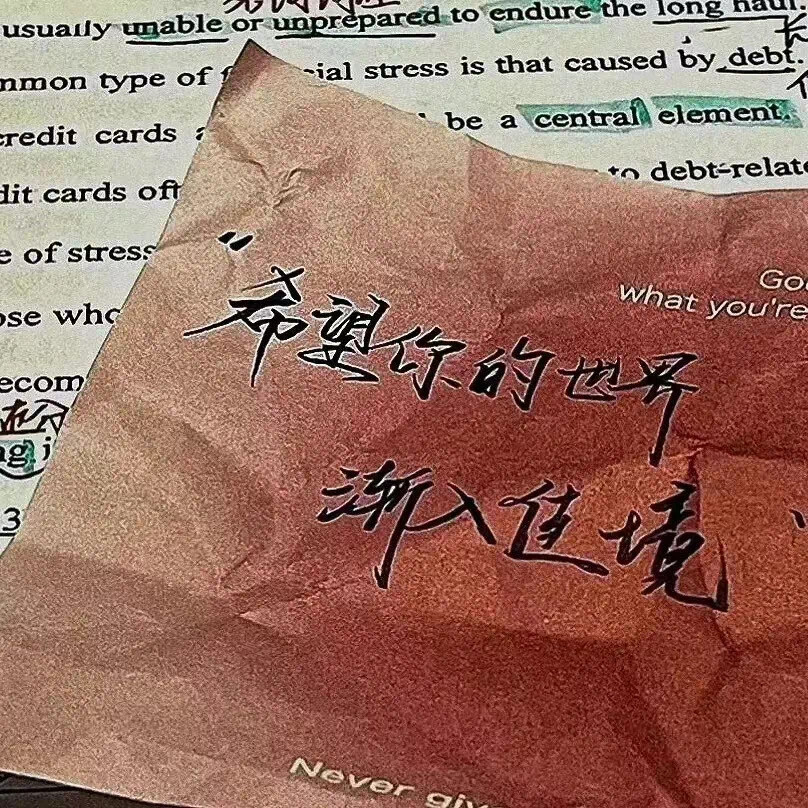 usually unable or unprepared to endure the long haul.
mmon type of ial stress is that caused by debt.
credit cards be a central element.
dit cards oft to debt-relate
e of stress
ose who
ecom
g i
3
"希望你的世界
渐入佳境"
Go
what you're
Never giv